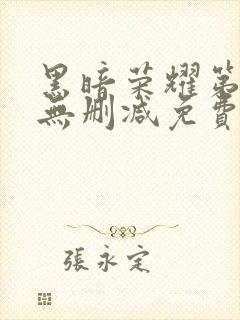 黑暗荣耀第
無删减免費
張永定